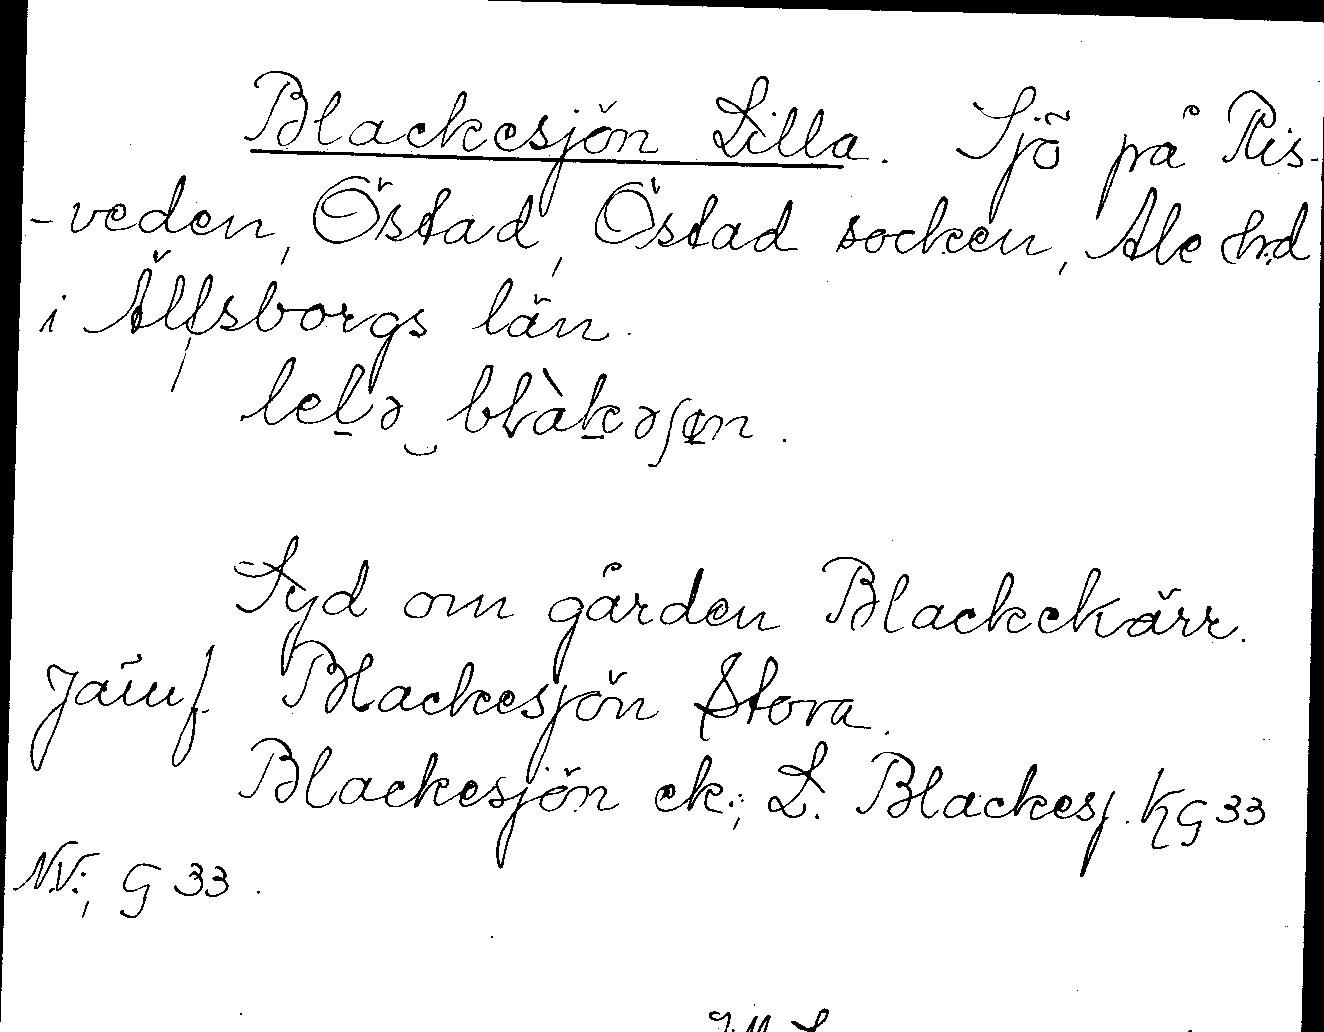 Blackesjön Lilla. Sjö på Ris-
-veden, Östad, Östad socken, Ale hd
i Älfsborgs län.
leḻə‿blàḵəʃɷn.
Syd om gården Blackekärr.
Jämf. Blackesjön Stora.
Blackesjön ek.; L. Blackesj. KG 33
NV.; G 33.